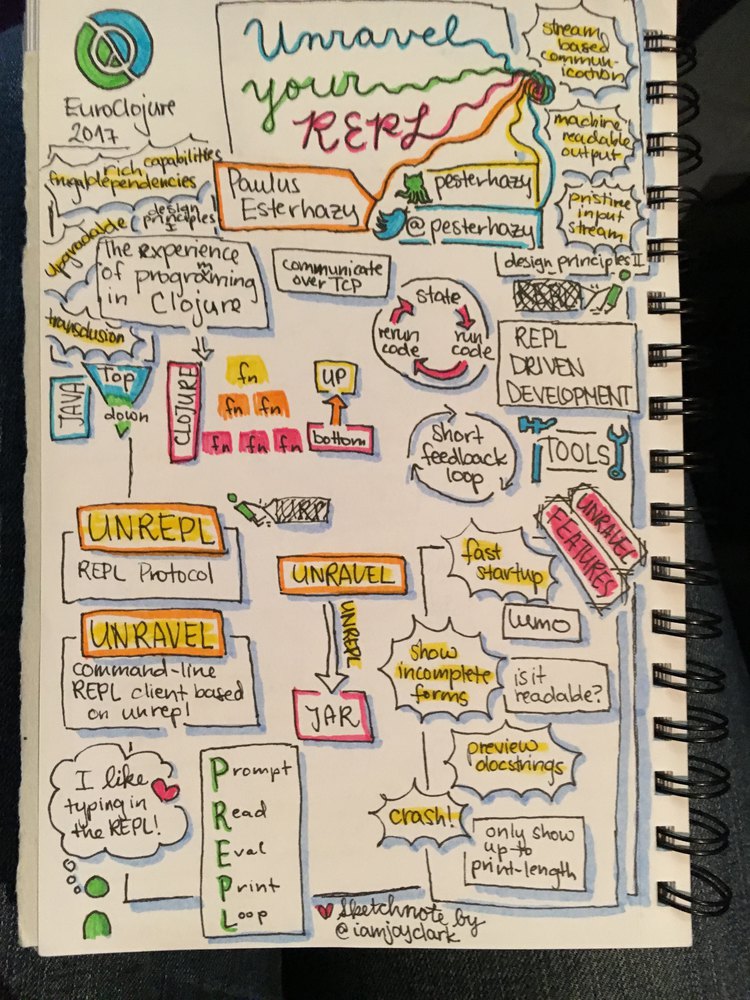 EuroClojure
2017
Unravel
your
REPL
Paulus
Esterhazy
pesterhazy
@pesterhazy
stream
based
commun-
ication
machine
readable
output
pristine
input
stream
design principles II
rich capabilities
frugal dependencies
upgradable
design
principles
I
transclusion
The experience
of programming
in Clojure
communicate
over TCP
state
run
code
rerun
code
REPL
DRIVEN
DEVELOPMENT
JAVA
Top
down
CLOJURE
fn
fn fn
fn fn fn
UP
bottom
short
feedback
loop
TOOLS
UNREPL
REPL Protocol
UNRAVEL
command-line
REPL client based
on unrepl
UNRAVEL
UNREPL
JAR
UNRAVEL
FEATURES
fast
startup
LUMO
show
incomplete
forms
is it
readable?
preview
docstrings
crash!
only show
up-to
print-length
I like
typing in
the REPL!
Prompt
Read
Eval
Print
Loop
Sketchnote by
@iamjoyclark